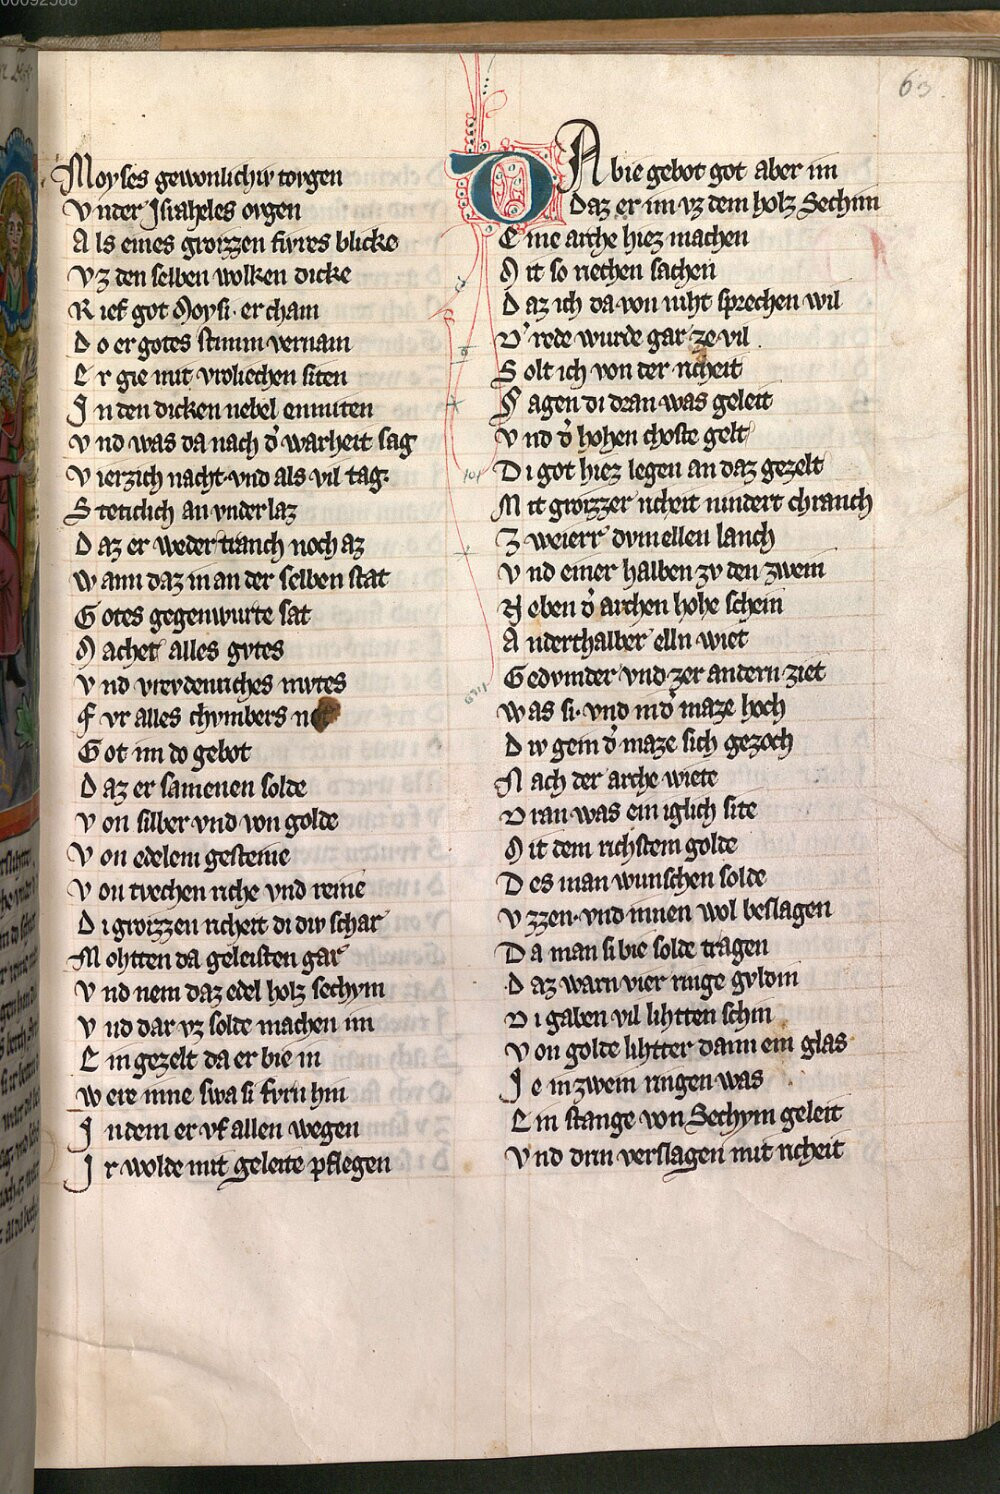 63
Moyses gewonlichiv tovgen
Vnder Israheles ovgen
Als eines groizzen fivres blicke
Vz den selben wolken dicke
Rief got Moysi · er cham
Do er gotes stimm vernam
Er gie mit vroliechen siten
In den dicken nebel enmiten
Vnd was da nach d' warheit sag
Vierzich nacht · vnd als vil tag ·
Stetichlich an vnderlaz
Daz er weder tranch noch az
Wann daz in an der selben stat
Gotes gegenwurte sat
Machet alles gvtes
Vnd vrevdenriches mvtes
Fvr alles chvmbers not
Got im do gebot
Daz er samenen solde
Von silber vnd von golde
Von edelem gesteine
Von tvechen riche vnd reine
Di groizzen richeit di div schar
Mohtten da geleisten gar
Vnd nem daz edel holz sechym
Vnd dar vz solde machen im
Ein gezelt da er bie in
Were inne swa si fvrn hin
In dem er vf allen wegen
Ir wolde mit geleite pflegen
DA bie gebot got aber im
Daz er im vz dem holz Sechim
Eine arche hiez machen
Mit so riechen sachen
Daz ich da von niht sprechen wil
D' rede wurde gar ze vil
Solt ich von der richeit
Sagen di dran was geleit
Vnd d' hohen choste gelt
Di got hiez legen an daz gezelt
Mit groizzer richeit nindert chranch
Zweierr dvmellen lanch
Vnd einer halben zv den zwein
Neben d' archen hohe schein
Anderthalber elln wiet
Gedvmder vnd zer andern ziet
Was si · vnd in d' maze hoch
Div gein d' maze sich gezoch
Nach der arche wiete
Dran was ein iglich site
Mit dem richstem golde
Des man wunschen solde
Vzzen · vnd innen wol beslagen
Da man si bie solde tragen
Daz warn vier ringe gvldin
Di gaben vil lihtten schin
Von golde lihtter dann ein glas
Je in zwein ringen was
Ein stange von Sechym geleit
Vnd drin verslagen mit richeit